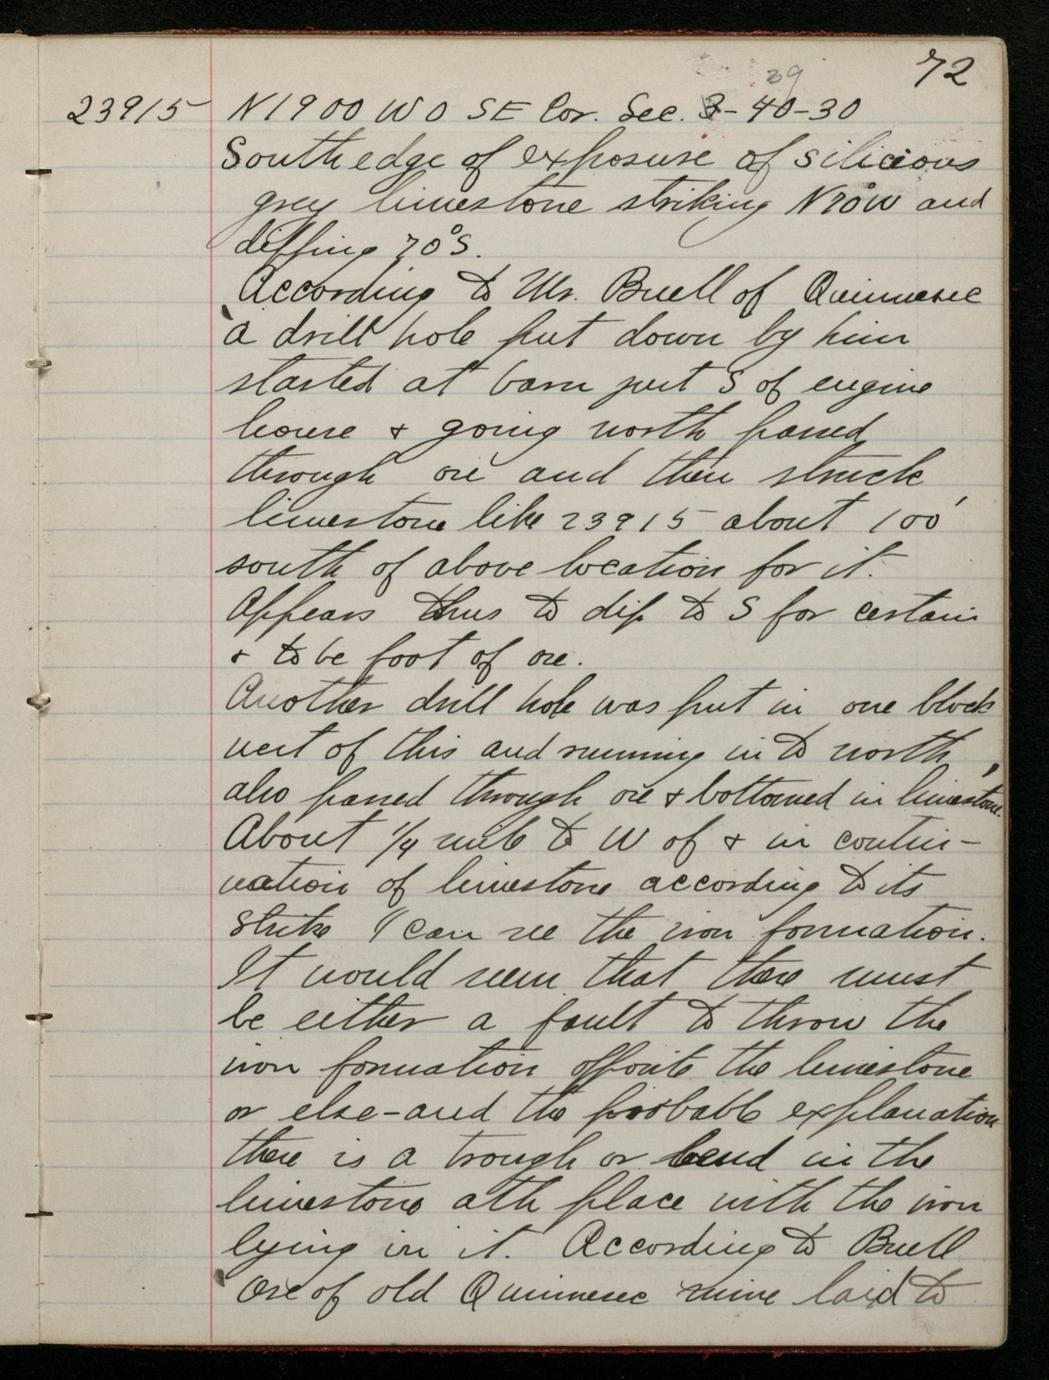 72
39
23915 N1900 W0 SE Cor. Sec. 3-40-30
South edge of exposure of silicious
grey limestone striking N70°W and
dipping 70°S.
According to Mr. Buell of Quinnesec
a drill hole put down by him
started at barn just S of engine
house & going north passed
through ore and then struck
limestone like 23915 about 100'
south of above location for it.
Appears thus to dip to S for certain
& to be foot of ore.
Another drill hole was put in one block
west of this and running in to north,
also passed through ore & bottomed in limestone.
About 1/4 mile to W of & in contin-
uation of limestone according to its
strike I can see the iron formation.
It would seem that there must
be either a fault to throw the
iron formation opposite the limestone
or else-and the probable explanation
there is a trough or bend in the
limestone at th place with the iron
lying in it. According to Buell
Ore of old Quinnesec mine laid to